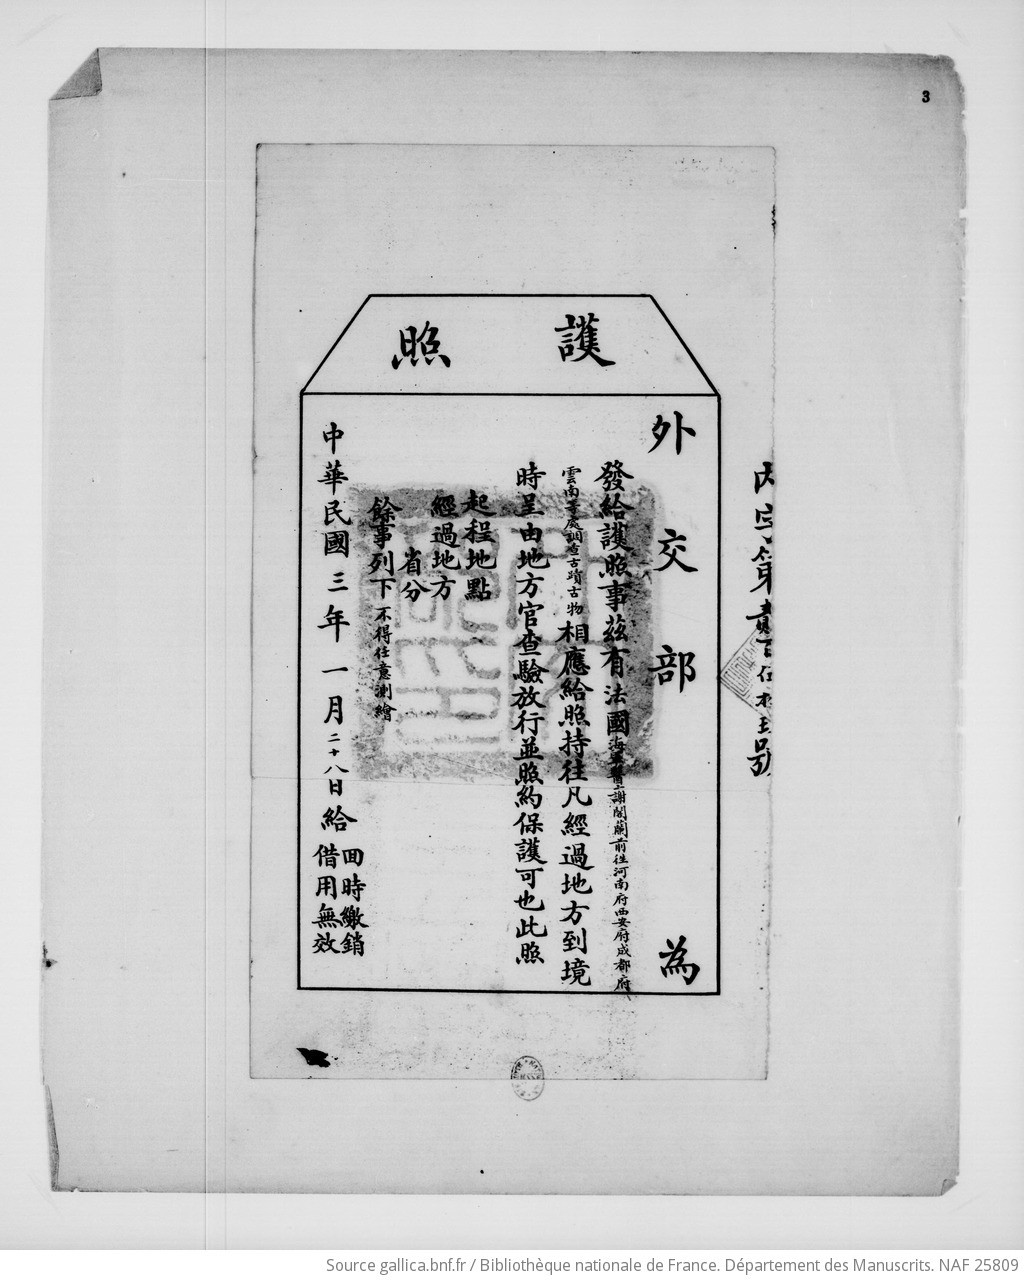 3
護照
丙字第貳百伍拾號
外交部為
發給護照事茲有法國海軍醫士謝閣蘭前往河南府西安府成都府
雲南等處調查古蹟古物相應給照持往凡經過地方到境
時呈由地方官查驗放行並照約保護可也此照
起程地點
經過地方
省分
餘事列下不得任意測繪
中華民國三年一月二十八日給
回時繳銷
借用無效
Source gallica.bnf.fr / Bibliothèque nationale de France. Département des Manuscrits. NAF 25809